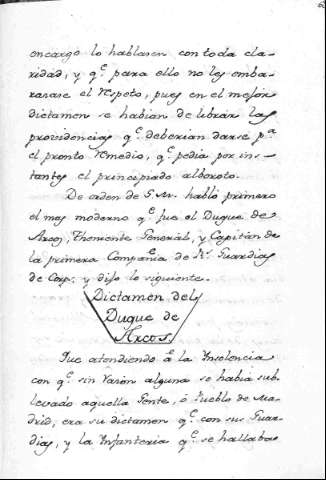 encargo lo hablasen con toda cla-
ridad, y q.e para ello no les emba-
rarase el respeto, pues en el mejor
dictamen se habian de librar las
providencias q.e deberian darse p.a
el pronto remedio, q.e pedia por ins-
tantes el principiado alboroto.
De orden de S. M. habló primero
el mas moderno q.e fue el Duque de
Arcos, Theniente General, y Capitan de
la primera Compañia de R.s Guardias
de Corp.s y dijo lo siguiente.
Dictamen del
Duque de
Arcos
Que atendiendo á la Insolencia
con q.e sin razon alguna se habia sub-
levado aquella Gente, ó Pueblo de Ma-
drid, era su dictamen q.e con sus Guar-
dias, y la Infanteria q.e se hallaba